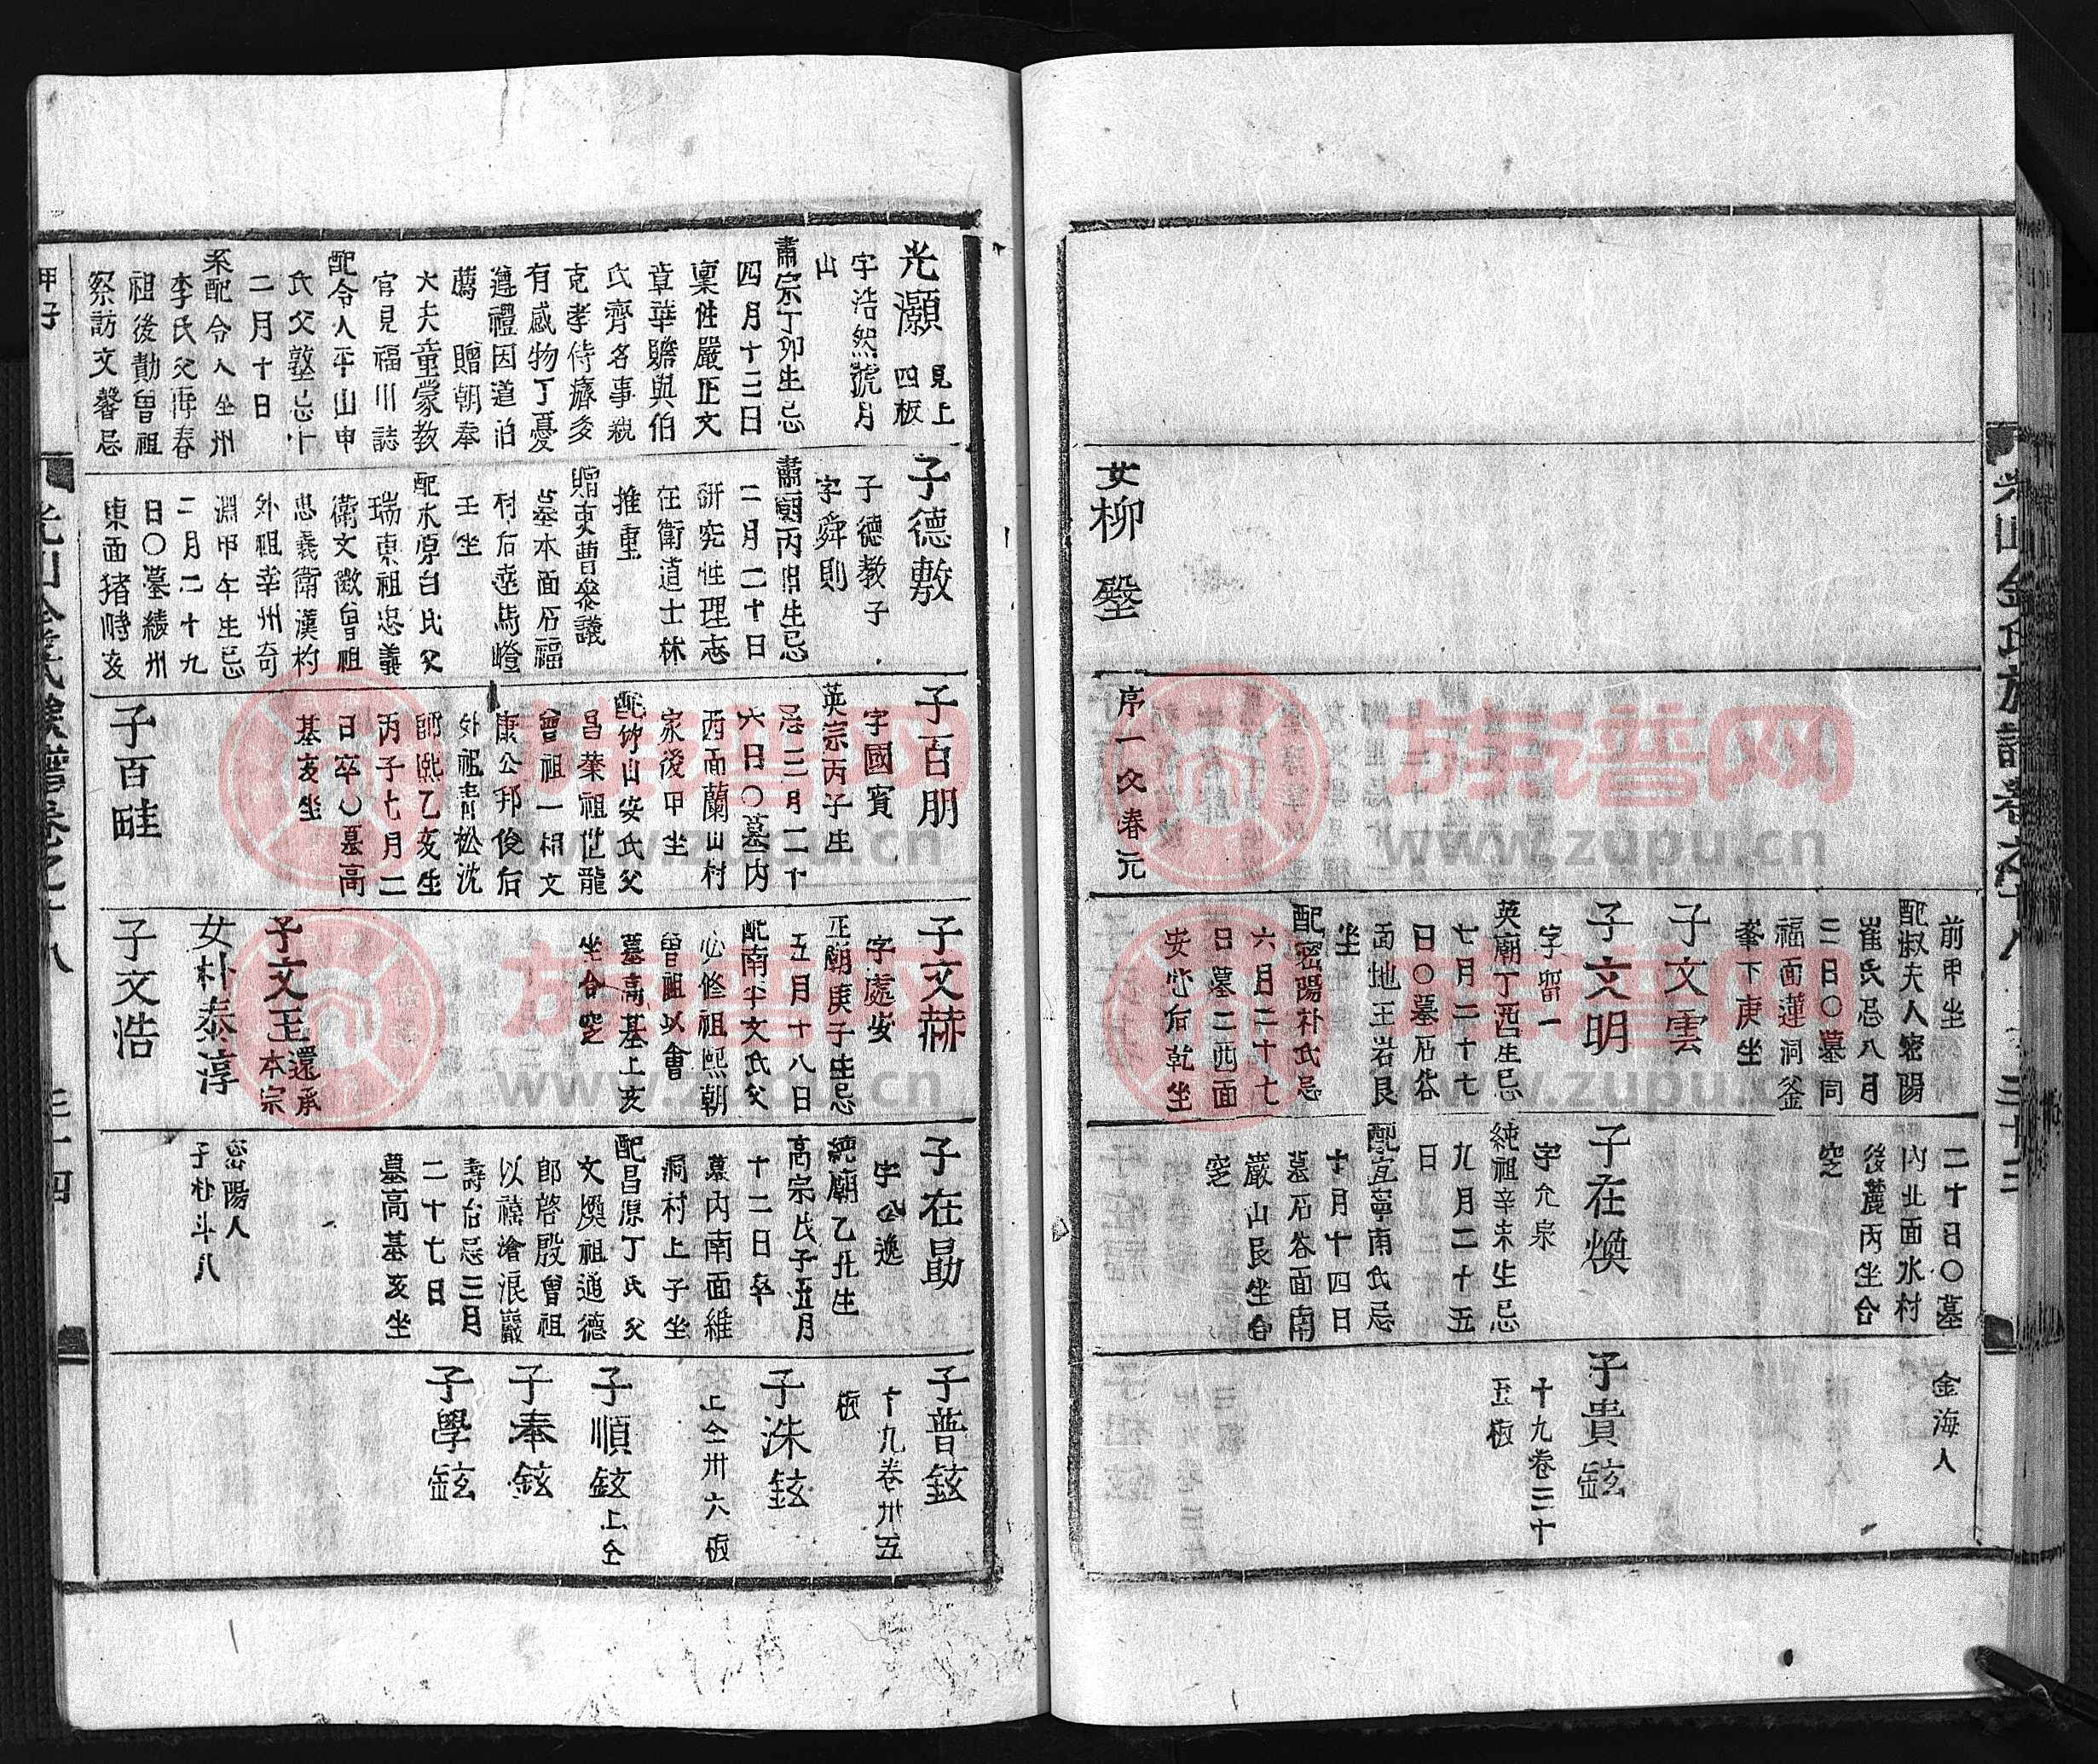 光山金氏族譜卷之十八
三十三
女柳㙠
序一文春元
前甲坐
配淑夫人密陽
崔氏忌八月
二日〇墓同
福面蓮洞釜
峯下庚坐
子文雲
子文明
字曾一
英廟丁酉生忌
七月二十七
日〇墓石谷
面地王岩艮
坐
配密陽朴氏忌
六月二十七
日墓二西面
安心后乾坐
二十日〇墓
內北面水村
後麓丙坐合
窆
子在煥
字允泉
純祖辛未生忌
九月二十五
日
配宜寧南氏忌
十月十四日
墓石谷面南
巖山艮坐合
窆
金海人
子貴鉉
十九卷三十
五板
光灝 見上四板
字浩然號月
山
肅宗丁卯生忌
四月十三日
稟性嚴正文
章華贍與伯
氏齊名事親
克孝侍癠多
有感物丁憂
遵禮因道伯
薦 贈朝奉
大夫童蒙教
官見福川誌
配令人平山申
氏父塾忌十
二月十日
系配令人全州
李氏父再春
祖後勣曾祖
察訪文馨忌
子德敷
子德教子
字舜則
肅廟丙申生忌
二月二十日
研究性理志
在衛道士林
推重
贈吏曹參議
墓本面石福
村后壺馬嶝
壬坐
配水原白氏父
瑞東祖忠義
衛文徵曾祖
忠義衛漢杓
外祖幸州奇
淵甲午生忌
二月二十九
日〇墓綾州
東面猪峙亥
子百朋
字國賓
英宗丙子生
忌二月二十
六日〇墓內
西面蘭山村
家後甲坐
配竹山安氏父
昌葉祖世龍
曾祖一相文
康公邦俊后
外祖靑松沈
師熙乙亥生
丙子七月二
日卒〇墓高
基亥坐
子百畦
子文赫
字處安
正廟庚子生忌
五月十八日
配南平文氏父
必修祖熙朝
曾祖以會
墓高基上亥
坐合窆
子文玉 還承本宗
女朴泰淳
子文浩
子在勛
字公逸
純廟乙丑生
高宗戊子五月
十二日卒
墓內南面維
洞村上子坐
配昌原丁氏父
文煥祖道德
郎啓殷曾祖
以禧滄浪巖
壽后忌三月
二十七日
墓高基亥坐
密陽人
子朴斗八
子普鉉
十九卷卅五
板
子洙鉉
上仝卅六板
子順鉉 上仝
子奉鉉
子學鉉
甲子
光山金氏族譜卷之十八
三十四